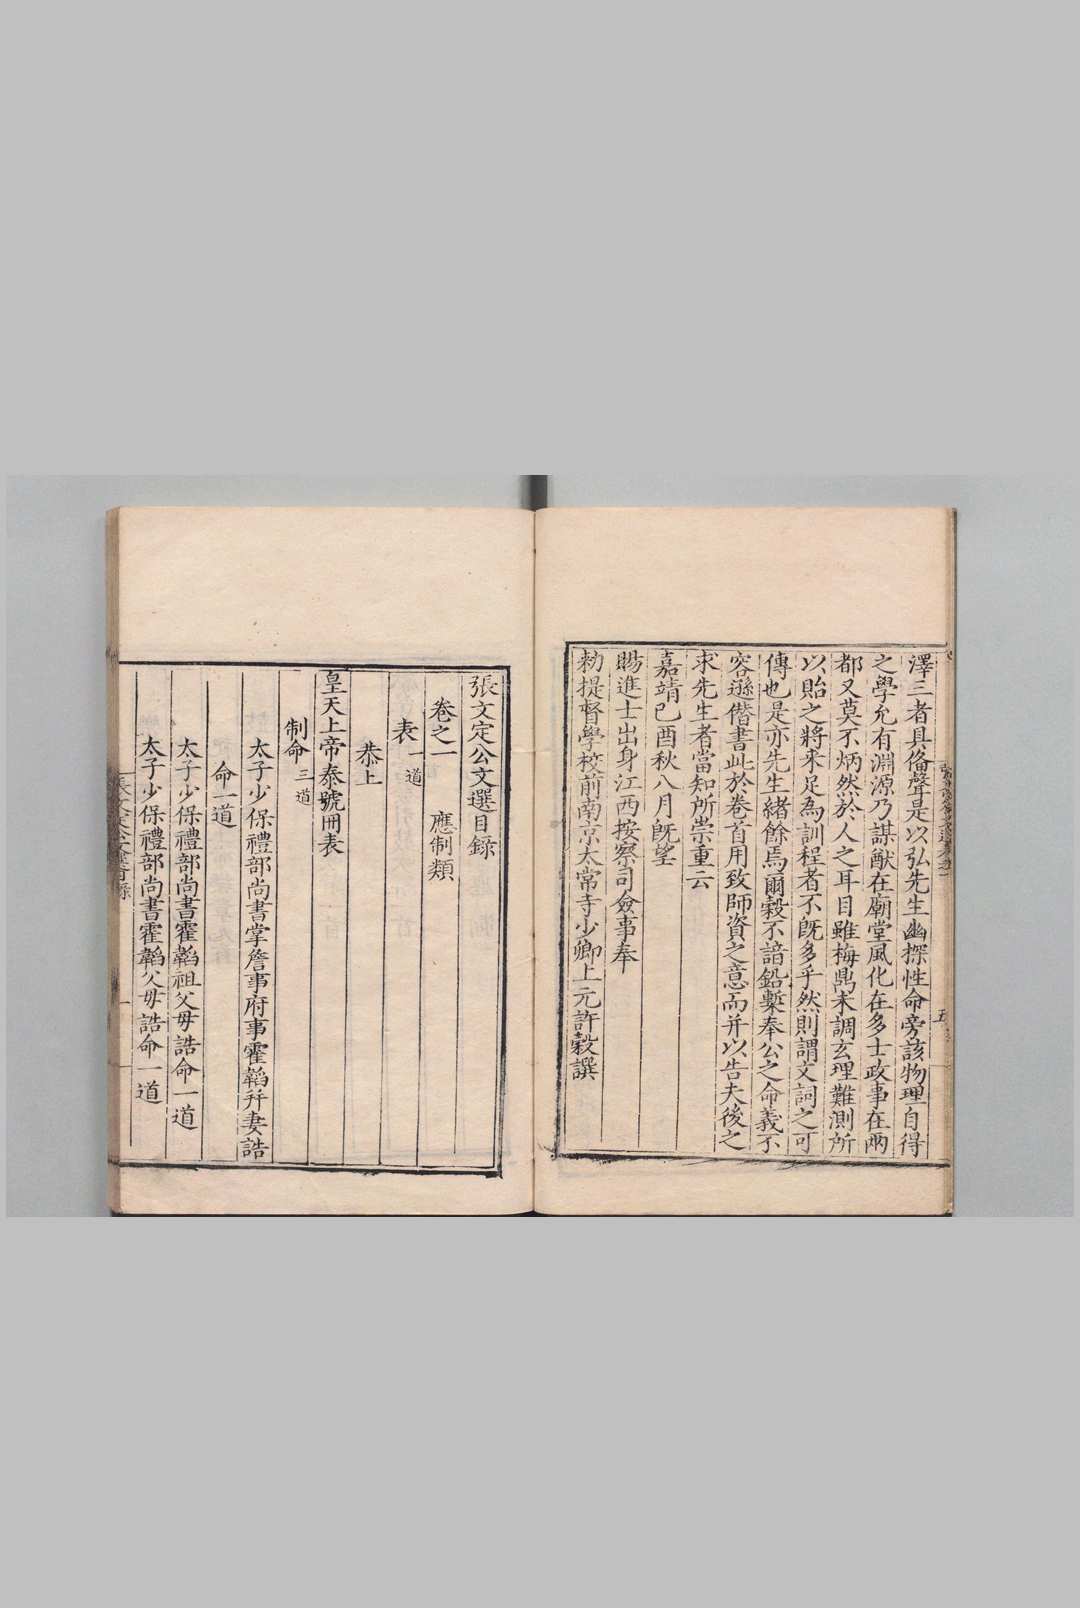 澤三者具俻聲是以弘先生幽探性命旁該物理自得
之學允有淵源乃謀猷在廟堂風化在多士政事在兩
都又莫不炳然於人之耳目雖梅鼎未調玄理難測所
以貽之將来足為訓程者不既多乎然則謂文詞之可
傳也是亦先生緒餘焉爾穀不諳鉛槧奉公之命義不
容遜僭書此於卷首用致師資之意而并以告夫後之
求先生者當知所崇重云
嘉靖己酉秋八月既望
賜進士出身江西按察司僉事奉
勑提督學校前南京太常寺少卿上元許穀譔
張文定公文選目録
卷之一 應制類
表一道
恭上
皇天上帝泰號冊表
制命三道
太子少保禮部尚書掌詹事府事霍韜并妻誥
命一道
太子少保禮部尚書霍韜祖父母誥命一道
太子少保禮部尚書霍韜父母誥命一道